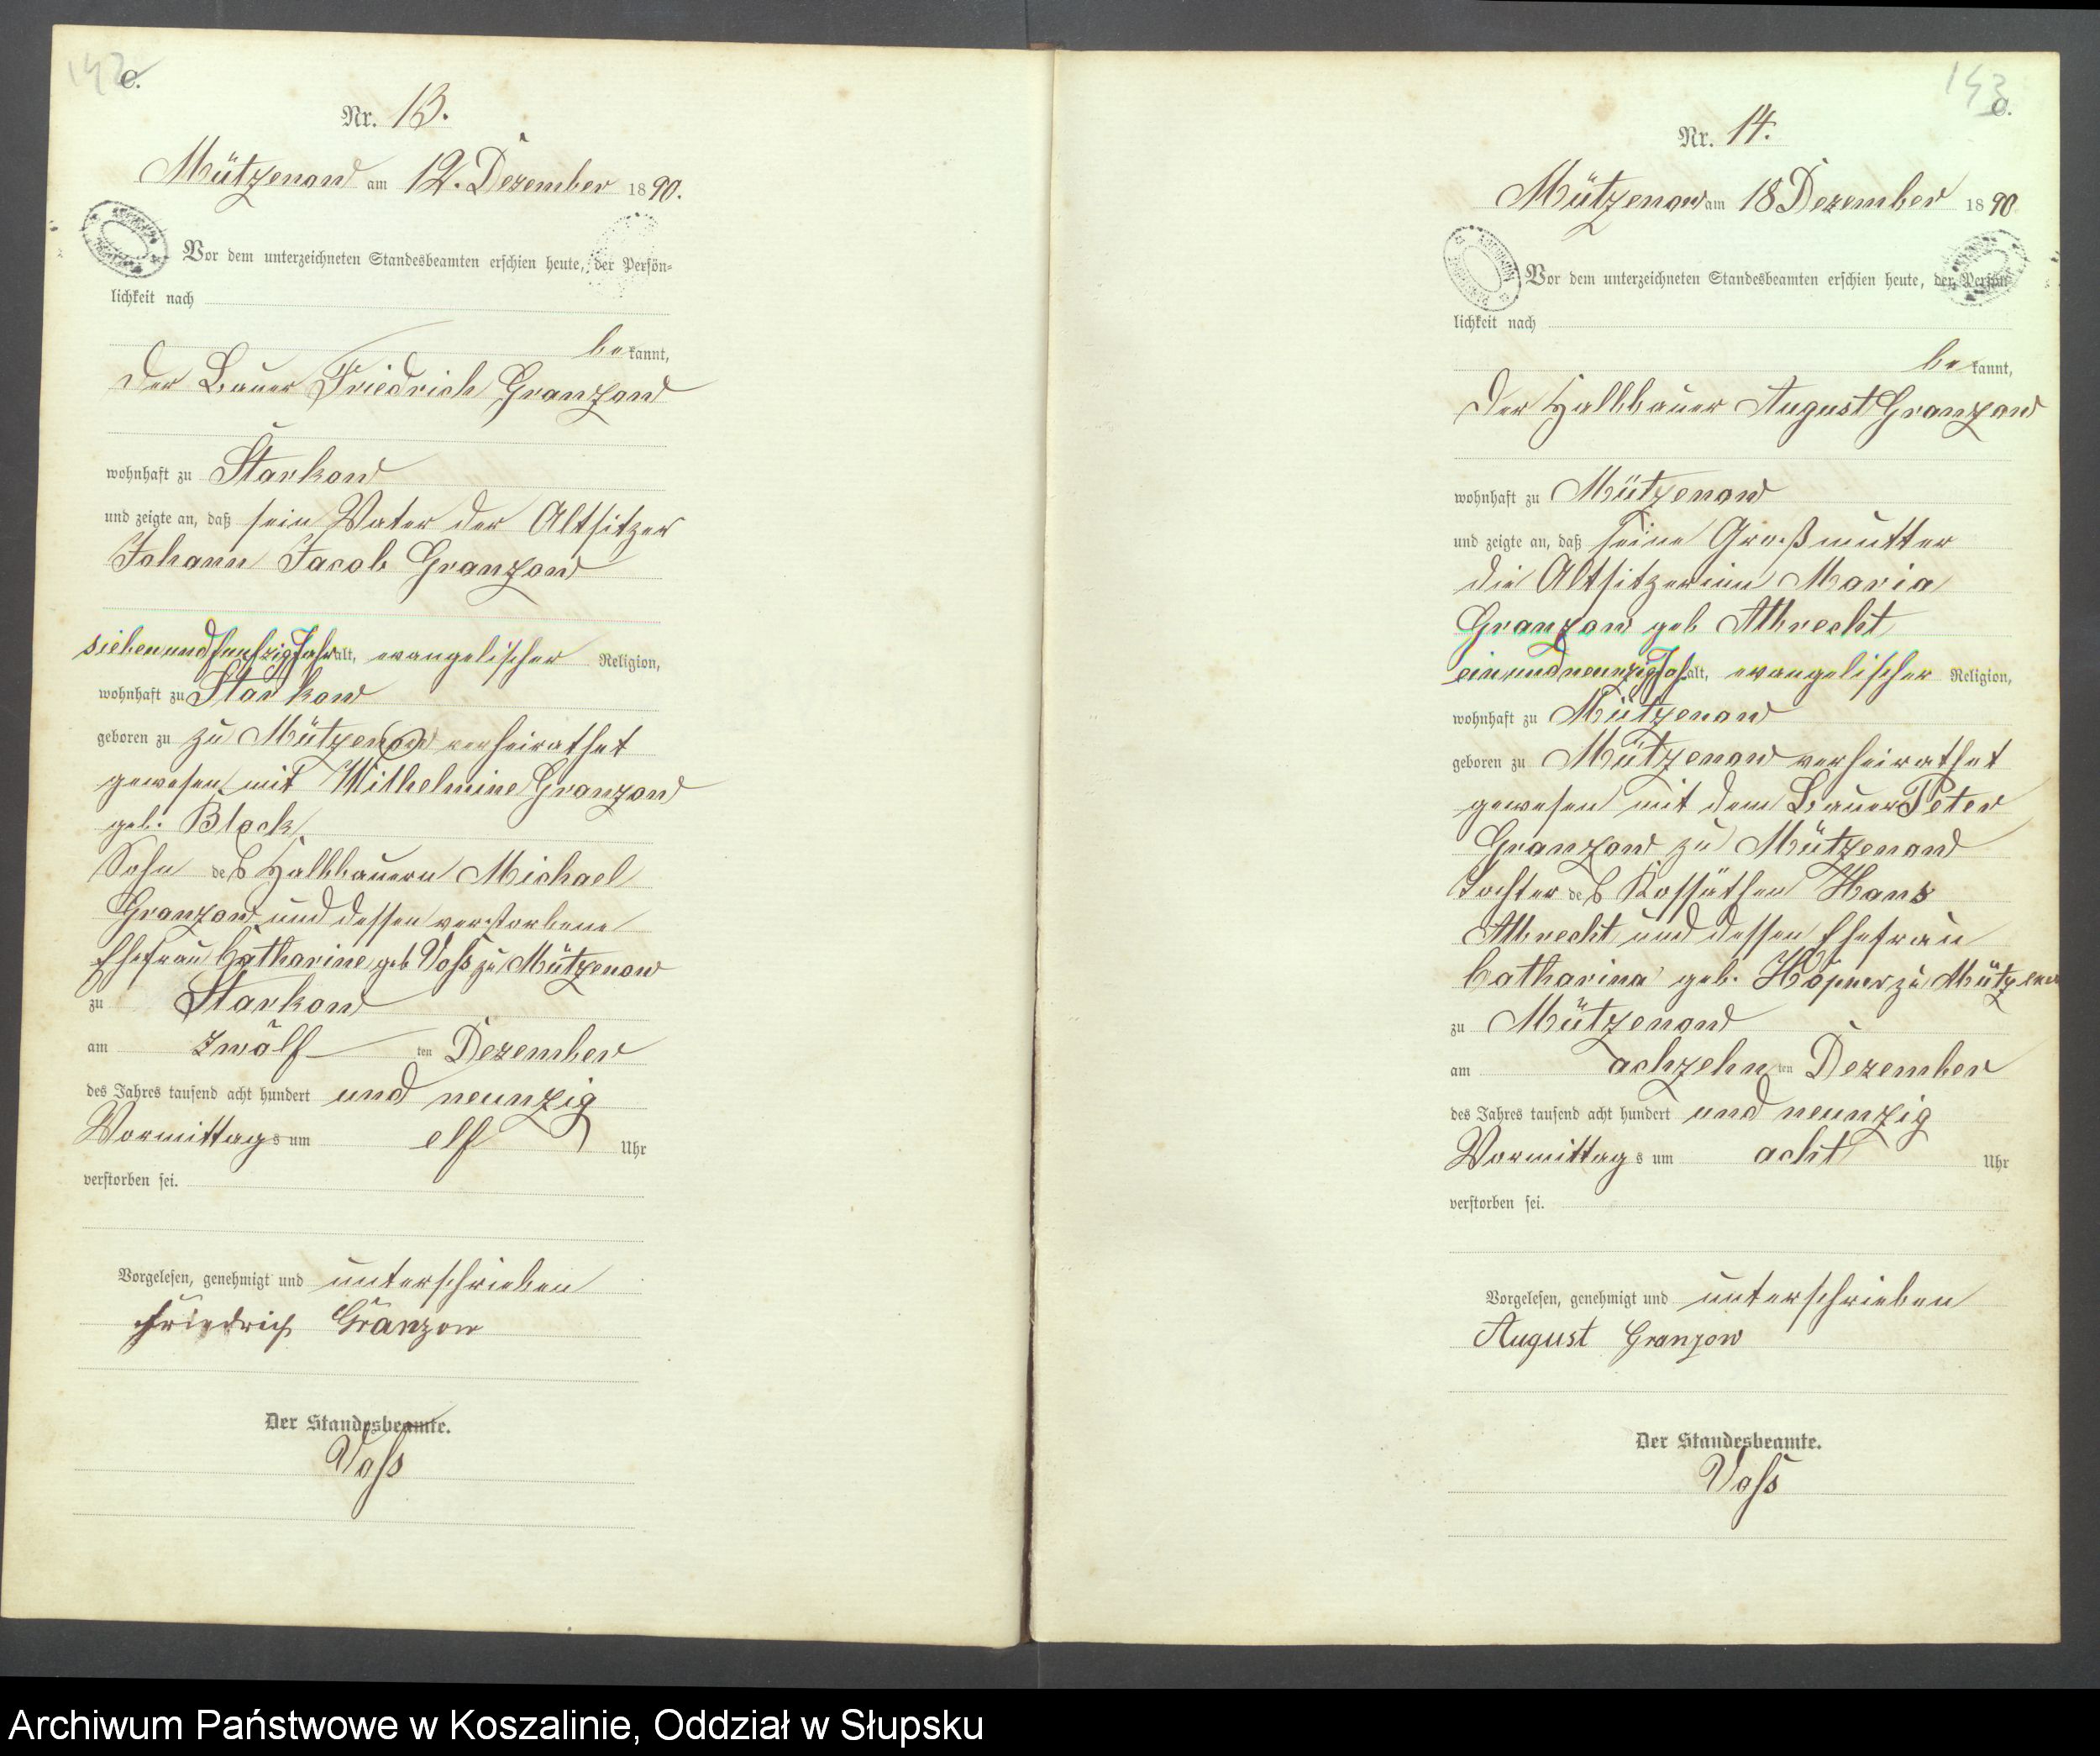 Nr. 13.
Mützenow am 12. Dezember 1890.
Vor dem unterzeichneten Standesbeamten erschien heute, der Persön-
lichkeit nach
bekannt,
der Bauer Friedrich Granzow
wohnhaft zu Starkow
und zeigte an, daß sein Vater der Altsitzer
Johann Jacob Granzow
siebenundfunfzig Jahr alt, evangelischer Religion,
wohnhaft zu Starkow
geboren zu zu Mützenow verheirathet
gewesen mit Wilhelmine Granzow
geb. Block
Sohn des Halbbauern Michael
Granzow und dessen verstorbene
Ehefrau Catharine geb Voß zu Mützenow
zu Starkow
am zwölf ten Dezember
des Jahres tausend acht hundert und neunzig
Vormittags um elf Uhr
verstorben sei.
Vorgelesen, genehmigt und unterschrieben
Friedrich Granzow
Der Standesbeamte.
Voß
143
Nr. 14.
Mützenow am 18 Dezember 1890
Vor dem unterzeichneten Standesbeamten erschien heute, der Persön-
lichkeit nach
bekannt,
der Halbbauer August Granzow
wohnhaft zu Mützenow
und zeigte an, daß seine Großmutter
die Altsitzerinn Maria
Granzow geb Albrecht
einundneunzig Jah alt, evangelischer Religion,
wohnhaft zu Mützenow
geboren zu Mützenow verheirathet
gewesen mit dem Bauer Peter
Granzow zu Mützenow
Tochter des Kossäthen Hans
Albrecht und dessen Ehefrau
Catharina geb. Höpner zu Mützenow
zu Mützenow
am achzehn ten Dezember
des Jahres tausend acht hundert und neunzig
Vormittags um acht Uhr
verstorben sei.
Vorgelesen, genehmigt und unterschrieben
August Granzow
Der Standesbeamte.
Voß
Archiwum Państwowe w Koszalinie, Oddział w Słupsku